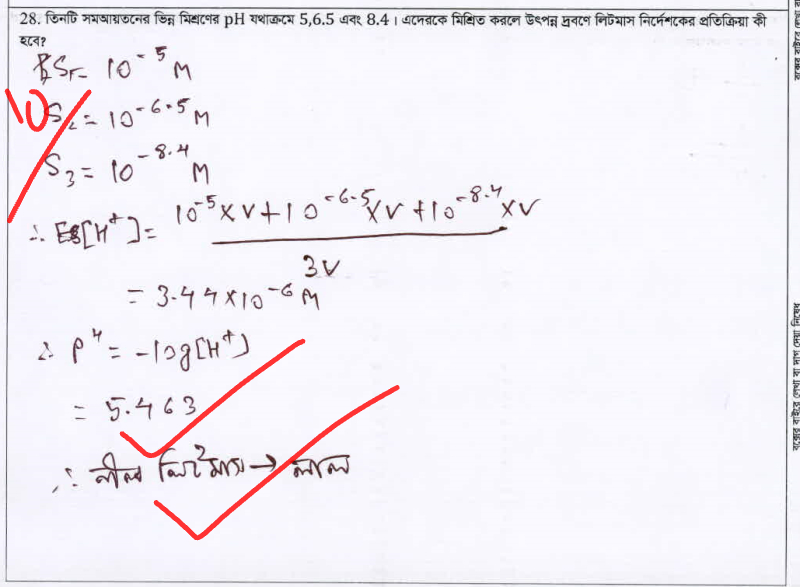 28. তিনটি সমআয়তনের ভিন্ন মিশ্রণের pH যথাক্রমে 5,6.5 এবং 8.4 । এদেরকে মিশ্রিত করলে উৎপন্ন দ্রবণে লিটমাস নির্দেশকের প্রতিক্রিয়া কী
হবে?
S₁ = 10⁻⁵ M
10
S₂ = 10⁻⁶·⁵ M
S₃ = 10⁻⁸·⁴ M
∴ [H⁺] = 10⁻⁵ × V + 10⁻⁶·⁵ × V + 10⁻⁸·⁴ × V
3V
= 3.44 × 10⁻⁶ M
∴ pH = -log[H⁺]
= 5.463
∴ নীল লিটমাস → লাল